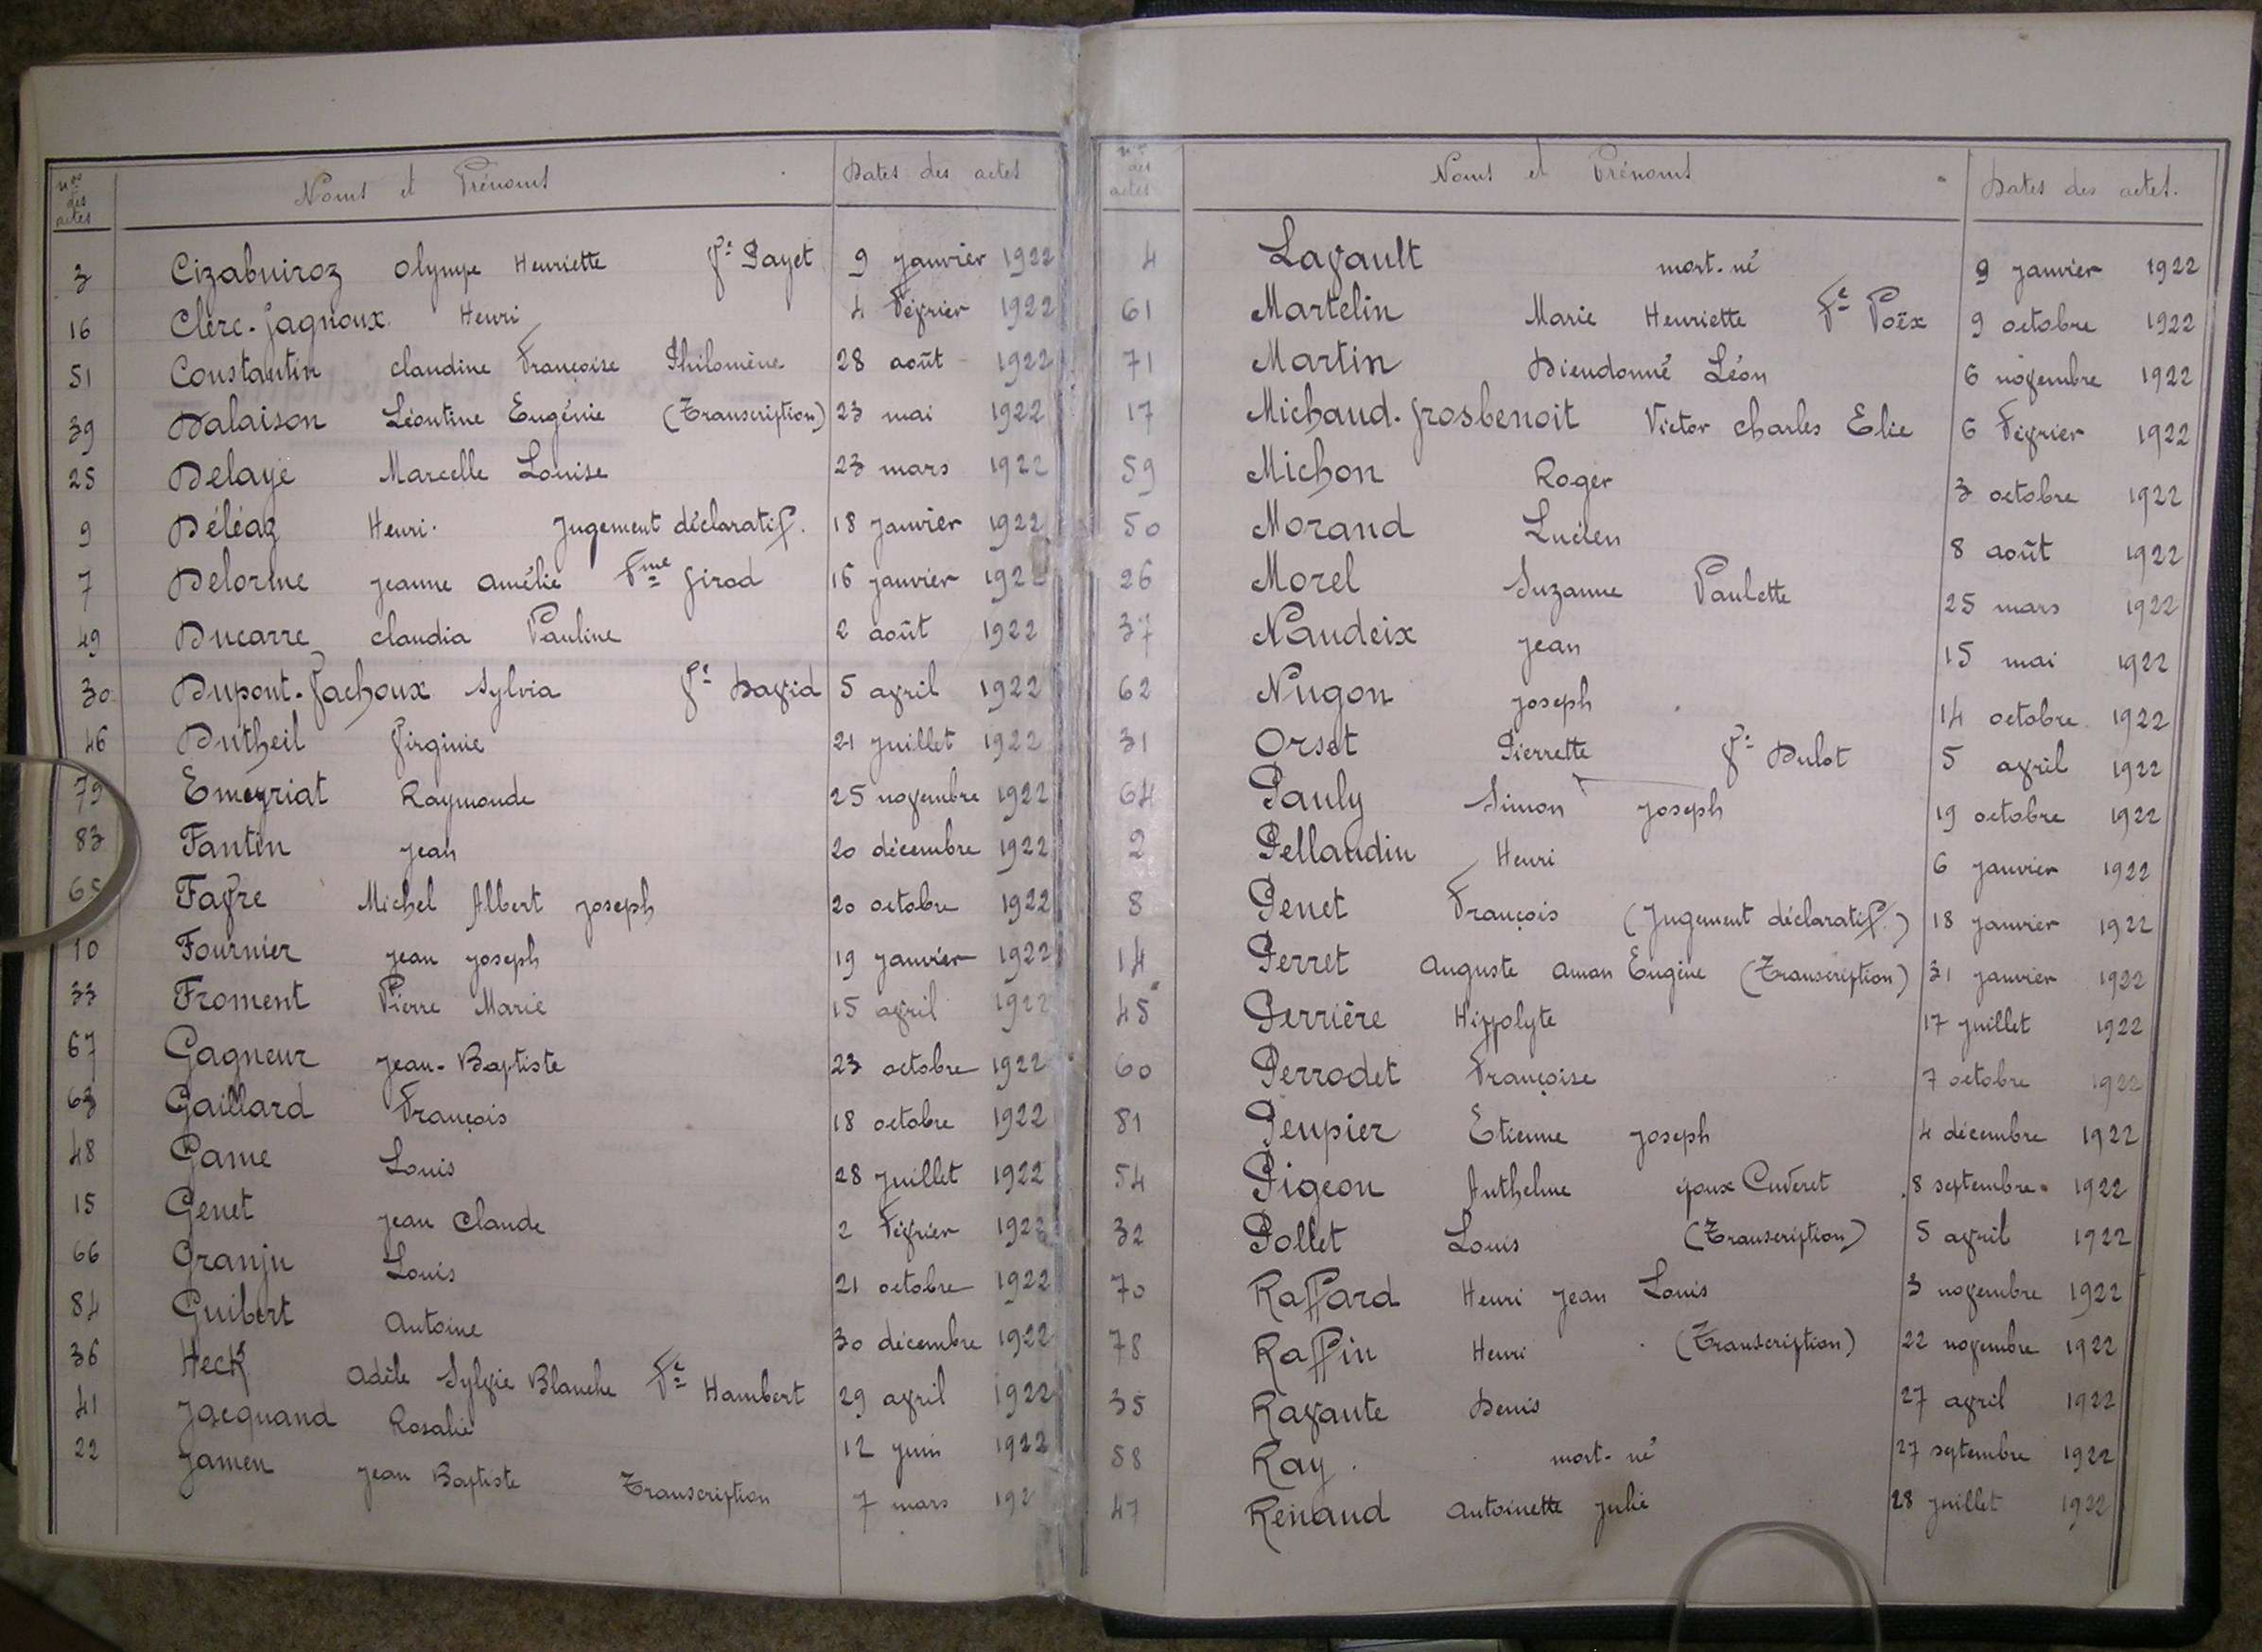 nos des actes Noms et Prénoms Dates des actes
3 Cizabuiroz Olympe Henriette Fe Payet 9 janvier 1922
16 Clerc-Jagnoux Henri 4 Février 1922
51 Constantin Claudine Françoise Philomène 28 août 1922
39 Dalaison Léontine Eugénie (Transcription) 23 mai 1922
25 Delaye Marcelle Louise 23 mars 1922
9 Déléaz Henri. Jugement déclaratif. 18 janvier 1922
7 Delorme Jeanne Amélie Fme Girod 16 janvier 1922
49 Ducarre Claudia Pauline 2 août 1922
30 Dupont-Gachoux Sylvia Fe David 5 avril 1922
46 Dutheil Virginie 21 juillet 1922
79 Emeyriat Raymonde 25 novembre 1922
83 Fantin Jean 20 décembre 1922
65 Favre Michel Albert Joseph 20 octobre 1922
10 Fournier Jean Joseph 19 janvier 1922
33 Froment Pierre Marie 15 avril 1922
67 Gagneur Jean-Baptiste 23 octobre 1922
63 Gaillard François 18 octobre 1922
48 Game Louis 28 juillet 1922
15 Genet Jean Claude 2 Février 1922
66 Granju Louis 21 octobre 1922
84 Guibert Antoine 30 décembre 1922
36 Heck Adèle Sylvie Blanche Fe Hambert 29 avril 1922
41 Jacquand Rosalie 12 juin 1922
22 Jamen Jean Baptiste Transcription 7 mars 192
nos des actes Noms et Prénoms Dates des actes.
4 Lavault mort-né 9 janvier 1922
61 Martelin Marie Henriette Fe Poëx 9 octobre 1922
71 Martin Dieudonné Léon 6 novembre 1922
17 Michaud-Grosbenoit Victor Charles Elie 6 Février 1922
59 Michon Roger 3 octobre 1922
50 Morand Lucien 8 août 1922
26 Morel Suzanne Paulette 25 mars 1922
37 Naudeix Jean 15 mai 1922
62 Nugon Joseph 14 octobre 1922
31 Orset Pierrette Fe Dulot 5 avril 1922
64 Pauly Simon Joseph 19 octobre 1922
2 Pellaudin Henri 6 janvier 1922
8 Penet François (Jugement déclaratif.) 18 janvier 1922
14 Perret Auguste Aman Eugène (Transcription) 31 janvier 1922
45 Perrière Hippolyte 17 juillet 1922
60 Perrodet Françoise 7 octobre 1922
81 Peupier Etienne Joseph 4 décembre 1922
54 Pigeon Anthelme époux Cuveret 8 septembre 1922
32 Pollet Louis (Transcription) 5 avril 1922
70 Raffard Henri Jean Louis 3 novembre 1922
78 Raffin Henri (Transcription) 22 novembre 1922
35 Ravaute Denis 27 avril 1922
58 Ray. mort-né 27 septembre 1922
47 Renaud Antoinette Julie 28 juillet 1922